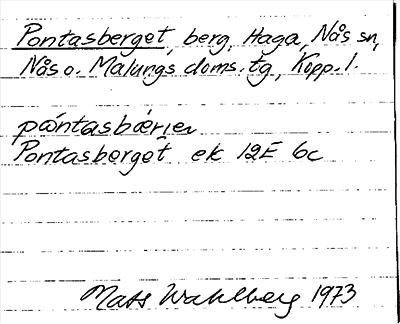 Pontasberget, berg, Haga, Nås sn,
Nås o. Malungs doms. tg, Kopp. l.
påntasbærjer
Pontasberget ek 12E 6c
Mats Wahlberg 1973